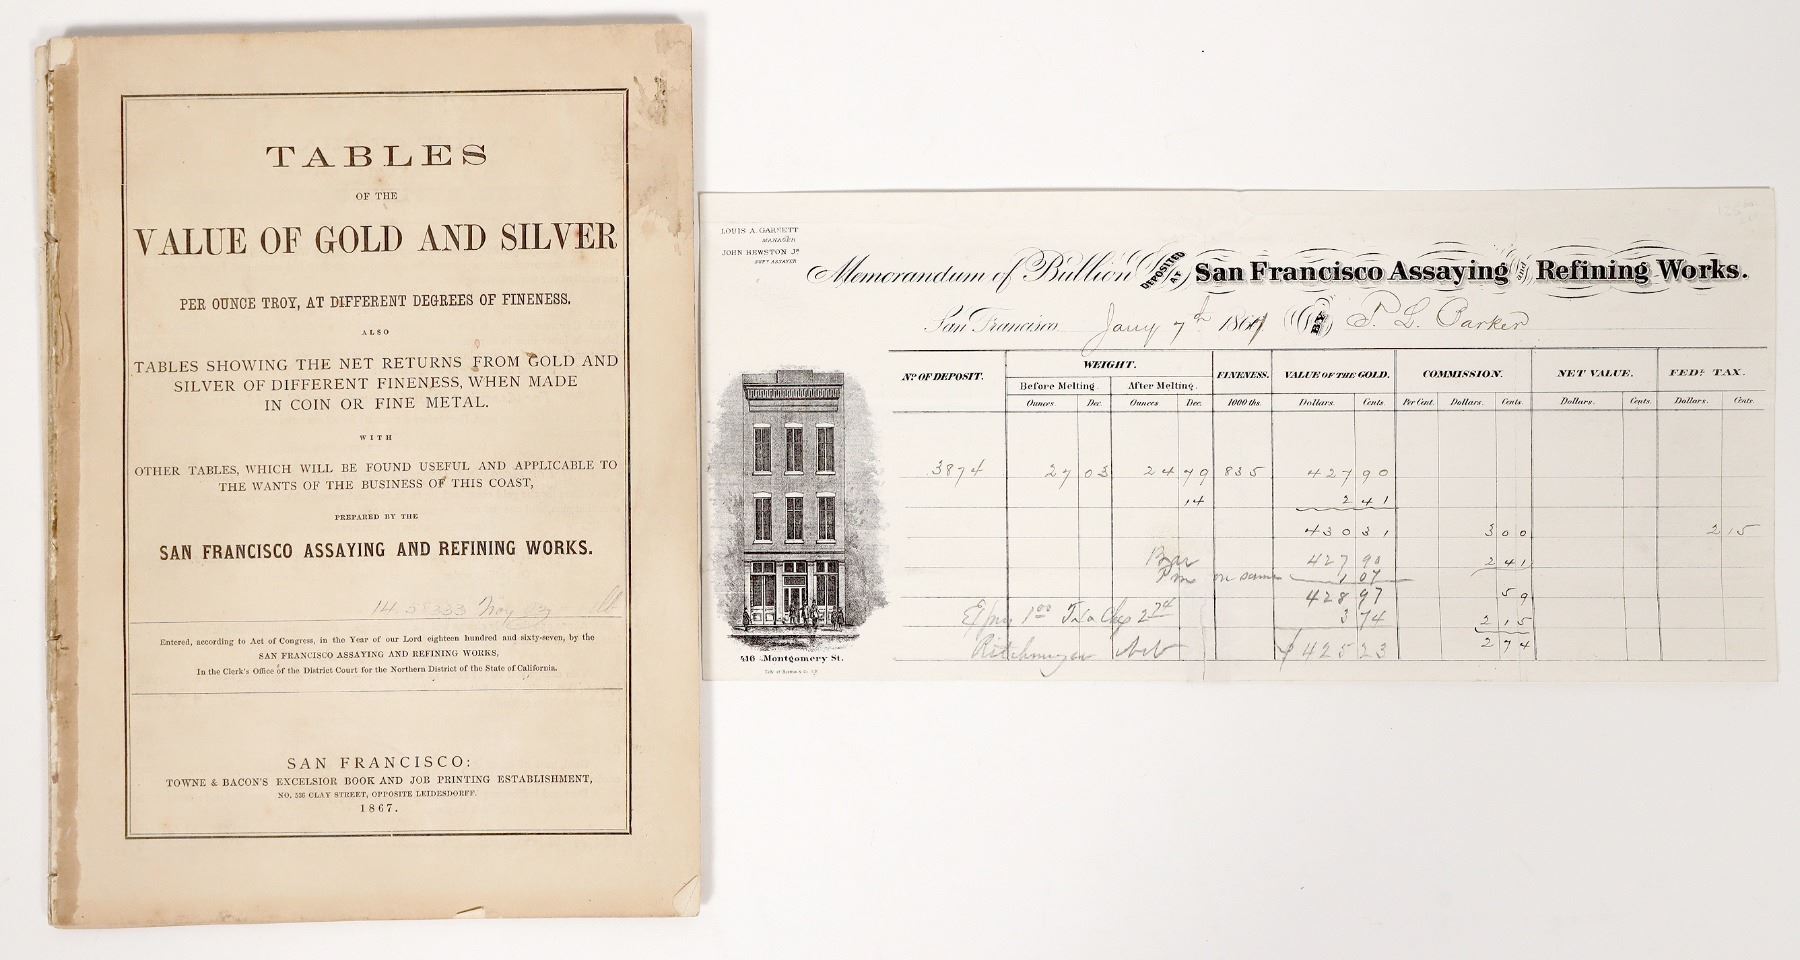 TABLES
OF THE
VALUE OF GOLD AND SILVER
PER OUNCE TROY, AT DIFFERENT DEGREES OF FINENESS.
ALSO
TABLES SHOWING THE NET RETURNS FROM GOLD AND
SILVER OF DIFFERENT FINENESS, WHEN MADE
IN COIN OR FINE METAL.
WITH
OTHER TABLES, WHICH WILL BE FOUND USEFUL AND APPLICABLE TO
THE WANTS OF THE BUSINESS OF THIS COAST,
PREPARED BY THE
SAN FRANCISCO ASSAYING AND REFINING WORKS.
14.58333 Troy oz
Entered, according to Act of Congress, in the Year of our Lord eighteen hundred and sixty-seven, by the
SAN FRANCISCO ASSAYING AND REFINING WORKS,
In the Clerk's Office of the District Court for the Northern District of the State of California.
SAN FRANCISCO:
TOWNE & BACON'S EXCELSIOR BOOK AND JOB PRINTING ESTABLISHMENT,
NO. 536 CLAY STREET, OPPOSITE LEIDESDORFF.
1867.
LOUIS A. GARNETT
MANAGER
JOHN HEWSTON Jr
SUPT ASSAYER
Memorandum of Bullion DEPOSITED AT San Francisco Assaying and Refining Works.
San Francisco Jany 7th 186 BY
Parker
No. OF DEPOSIT. WEIGHT. FINENESS. VALUE OF THE GOLD. COMMISSION. NET VALUE. FEDl. TAX.
Before Melting. After Melting.
Ounces. Dec. Ounces. Dec. 1000 ths. Dollars. Cents. Per Cent. Dollars. Cents. Dollars. Cents. Dollars. Cents.
3874 27 03 24 79 835 427 90
14 2 41
430 31 3 00 2 15
Bar 427 90 2 41
Pm on same 1 07
428 97 59
1 00 2 74 3 74 2 15
425 23 2 74
416 Montgomery St.